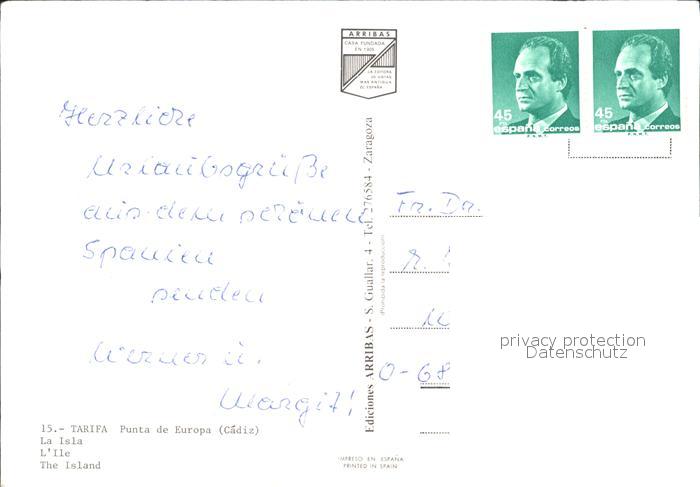 ARRIBAS
CASA FUNDADA
EN 1905
LA EDITORA
DE VISTAS
MAS ANTIGUA
DE ESPAÑA
45
españa correos
F.N.M.T.
45
españa correos
F.N.M.T.
Herzliche
Urlaubsgrüße
aus dem schönen
Spanien
senden
Werner u.
Margit!
15.- TARIFA Punta de Europa (Cádiz)
La Isla
L'Ile
The Island
Ediciones ARRIBAS - S. Guallar, 4 - Tel. 276584 - Zaragoza
(Prohibida la reproducción)
Fr. Dr.
O-68
privacy protection
Datenschutz
IMPRESO EN ESPAÑA
PRINTED IN SPAIN